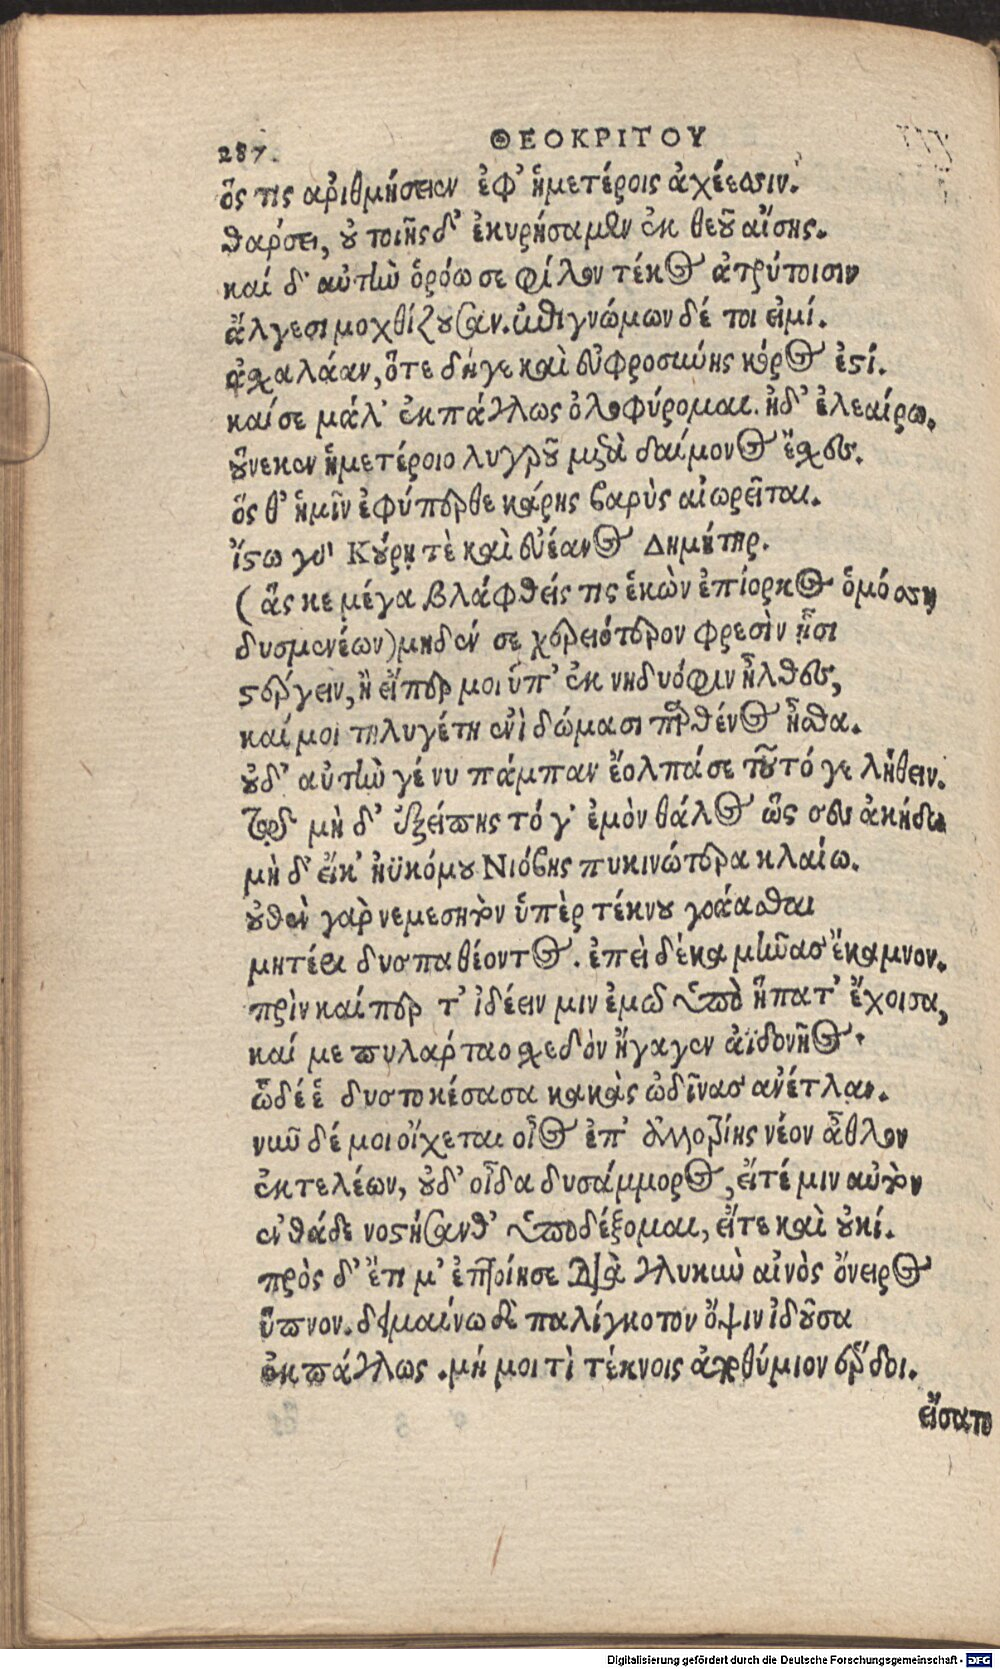 287. ΘΕΟΚΡΙΤΟΥ
ὅς τις ἀριθμήσειεν ἐφ' ἡμετέροις ἀχέεσσιν.
θάρσει, οὐ τοιῆσδ' ἐκυρήσαμεν ἐκ θεοῦ αἴσης.
καί δ' αὐτὴν ὁρόω σε φίλον τέκος ἀτρύτοισιν
ἄλγεσι μοχθίζουσαν. ἐπιγνώμων δέ τοι εἰμί.
ἀσχαλάαν, ὅτε δή γε καὶ εὐφροσύνης κόρος ἐστί.
καί σε μάλ' ἐκπάγλως ὀλοφύρομαι. ἠδ' ἐλεαίρω.
οὕνεκεν ἡμετέροιο λυγροῦ μετὰ δαίμονος ἔσχες.
ὅς θ' ἡμῖν ἐφύπερθε κάρης βαρὺς αἰωρεῖται.
ἴστω γὸ Κούρη τὲ καὶ εὐέανος Δημήτηρ.
(ἅς κε μέγα βλάφθείς τις ἑκὼν ἐπίορκος ὁμόσση
δυσμενέων) μηδέν σε χερειότερον φρεσὶν ᾗσι
στέργειν, ἢ εἴπερ μοι ὑπ' ἐκ νηδυόφιν ἦλθες,
καί μοι τηλυγέτη ἐνὶ δώμασι παρθένος ἦσθα.
οὐδ' αὐτὴν γέ νυ πάμπαν ἔολπά σε τοῦτό γε λήθειν.
τῷ μὴ δ' ἐξείπῃς τό γ' ἐμὸν θάλος ὥς σευ ἀκήδω
μὴ δ' εἴκ' ἠϋκόμου Νιόβης πυκινώτερα κλαίω.
οὐθὲν γὰρ νεμεσητὸν ὑπὲρ τέκνου γοάασθαι
μητέρι δυσπαθέοντος. ἐπεὶ δέκα μῆνας ἔκαμνον.
πρὶν καί περ τ' ἰδέειν μιν ἐμῷ ὑπὸ ἥπατ' ἔχοισα,
καί με πυλάρταο σχεδὸν ἤγαγεν ἀϊδονῆος.
ὧδέ ἑ δυστοκέσασα κακὰς ὠδῖνας ἀνέτλαν.
νῦν δέ μοι οἴχεται οἶος ἐπ' ἀλλοτρίης νέον ἆθλον
ἐκτελέων, οὐδ' οἶδα δυσάμμορος, εἴτέ μιν αὖτον
ἐνθάδε νοστήσανθ' ὑποδέξομαι, εἴτε καὶ οὐκί.
πρὸς δ' ἔτι μ' ἐπτοίησε διὰ γλυκὺν αἰνὸς ὄνειρος
ὕπνον. δειμαίνω δὲ παλίγκοτον ὄψιν ἰδοῦσα
ἐκπάγλως. μή μοι τὶ τέκνοις ἀποθύμιον ἔρδοι.
εἴσατο
Digitalisierung gefördert durch die Deutsche Forschungsgemeinschaft - DFG